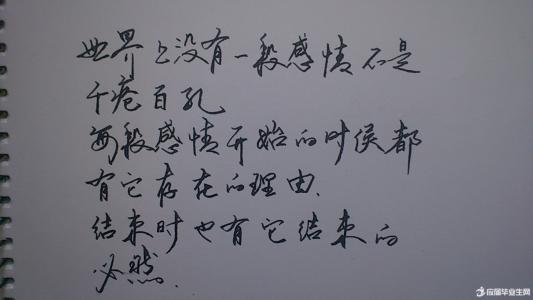 世界上没有一段感情不是
千疮百孔
每段感情开始的时侯都
有它存在的理由.
结束时也有它结束的
必然.
应届毕业生网